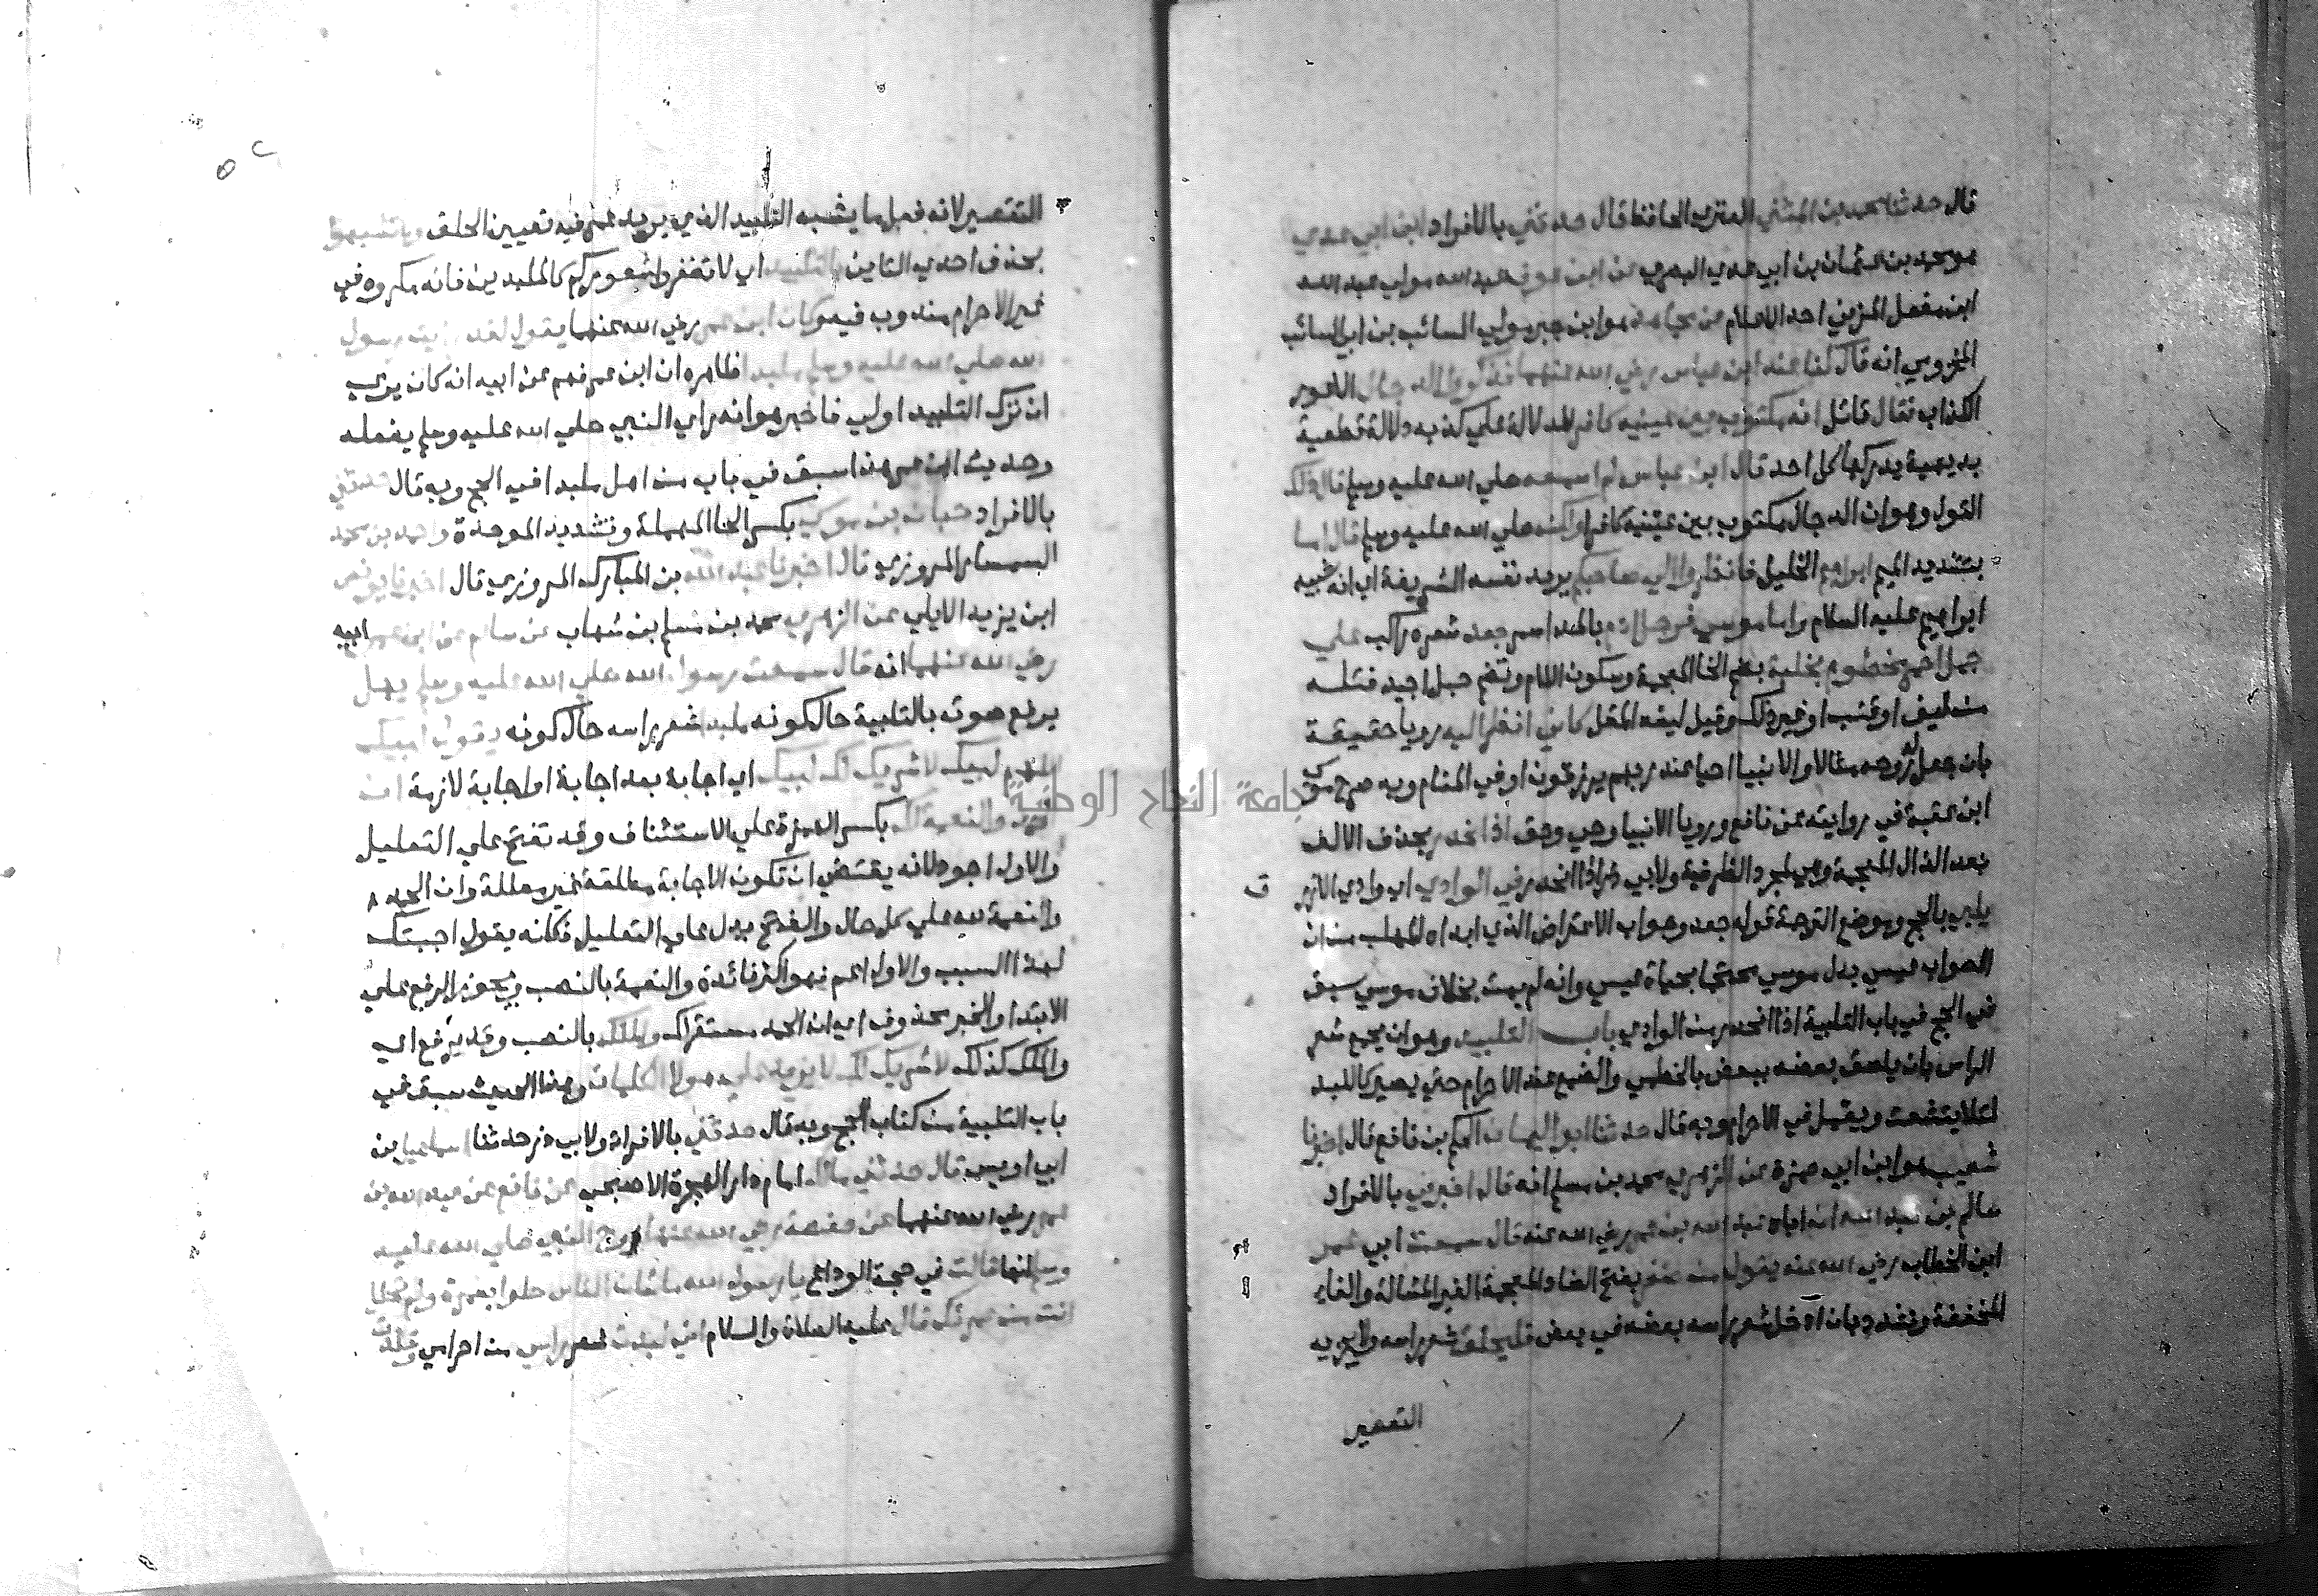 قال حدثنا محمد بن المثني العنزي الحافظ قال حدثني بالافراد ابن ابي عدي
هو محمد بن عثمان بن ابي عدي البصري عن ابن عون عبد الله مولي عبد الله
ابن مغفل المزني احد الاعلام عن مجاهد هو ابن جبر مولي السائب بن ابي السائب
المخزومي انه قال كنا عند ابن عباس رضي الله عنهما فذكروا الدجال الاعور
الكذاب فقال قائل انه مكتوب بين عينيه كافر للدلالة علي كذبه دلالة قطعية
بديهية يدركها كل احد قال ابن عباس لم اسمعه صلي الله عليه وسلم قال ذلك
القول وهو ان الدجال مكتوب بين عينيه كافر ولكنه صلي الله عليه وسلم قال اما
بتشديد الميم ابراهيم الخليل فانظروا الي صاحبكم يريد نفسه الشريفة اي انه شبيه
ابراهيم عليه السلام واما موسي فرجل ادم بالمد اسمر جعد شعره راكب علي
جمل احمر مخطوم بخلبة بضم الخا المعجمة وسكون اللام وتضم حبل اجيد فتله
من ليف او قنب او غير ذلك وقيل ليف المقل كاني انظر اليه رويا حقيقة
بان جعل لروحه مثالا والانبيا احيا عند ربهم يرزقون او في المنام وبه صرح موسي
ابن عقبة في روايته عن نافع ورويا الانبيا وحي وحق اذ انحدر بحذف الالف
بعد الذال المعجمة وهي لمجرد الظرفية ولابي ذر اذا انحدر في الوادي اي وادي الازرق
يلبي بالحج وموضع الترجمة قوله جعد وجواب الاعتراض الذي ابداه المهلب من ان
الصواب عيسي بدل موسي محتجا بحياة عيسي وانه لم يمت بخلاف موسي سبق
في الحج في باب التلبية اذا انحدر من الوادي باب التلبيد وهو ان يجمع شعر
الراس بان يلصق بعضه ببعض بالخطمي والصمغ عند الاحرام حتي يصير كاللبد
لئلا يتشعث ويقمل في الاحرام وبه قال حدثنا ابو اليمان الحكم بن نافع قال اخبرنا
شعيب هو ابن ابي حمزة عن الزهري محمد بن مسلم انه قال اخبرني بالافراد
سالم بن عبد الله ان اباه عبد الله بن عمر رضي الله عنه قال سمعت ابي عمر
ابن الخطاب رضي الله عنه يقول من ضفر بفتح الضاد المعجمة الغير المشالة والفاء
المخففة وتشدد بان ادخل شعر راسه بعضه في بعض فليحلق شعر راسه ولا يجزيه
التقصير
التقصير لانه فعل ما يشبه التلبيد الذي يريد عمر فيه تعيين الحلق ولا تشبهوا
بحذف احدي التاين بالتلبيد اي لا تضفروا شعوركم كالملبدين فانه مكروه في
غير الاحرام مندوب فيه وكان ابن عمر رضي الله عنهما يقول لقد رايت رسول
الله صلي الله عليه وسلم ملبدا فظاهره ان ابن عمر فهم عن ابيه انه كان يري
ان ترك التلبيد اولي فاخبر هو انه راي النبي صلي الله عليه وسلم يفعله
وحديث ابن عمر هذا سبق في باب من اهل ملبدا في الحج وبه قال حدثني
بالافراد حبان بن موسي بكسر الحا المهملة وتشديد الموحدة واحمد بن محمد
السمسار المروزي قال اخبرنا عبد الله بن المبارك المروزي قال اخبرنا يونس
ابن يزيد الايلي عن الزهري محمد بن مسلم بن شهاب عن سالم عن ابن عمر ابيه
رضي الله عنهما انه قال سمعت رسول الله صلي الله عليه وسلم يهل
يرفع صوته بالتلبية حال كونه ملبدا شعر راسه حال كونه يقول لبيك
اللهم لبيك لا شريك لك لبيك اي اجابة بعد اجابة او اجابة لازمة ان
الحمد والنعمة لك بكسر الهمزة علي الاستئناف وقد تفتح علي التعليل
والاول اجود لانه يقتضي ان تكون الاجابة مطلقة غير معللة وان الحمد
والنعمة لله علي كل حال والفتح يدل علي التعليل فكانه يقول اجبتك
لهذا السبب والاول اعم فهو اكثر فائدة والنعمة بالنصب ويجوز الرفع علي
الابتدا والخبر محذوف اي ان الحمد مستقر لك والملك بالنصب وقد يرفع اي
والملك كذلك لا شريك لك لا يزيد علي هولا الكلمات وهذا الحديث سبق في
باب التلبية من كتاب الحج وبه قال حدثني بالافراد ولابي ذر حدثنا اسماعيل بن
ابي اويس قال حدثني مالك امام دار الهجرة الاصبحي عن نافع عن عبد الله بن
عمر رضي الله عنهما عن حفصة رضي الله عنها زوج النبي صلي الله عليه
وسلم انها قالت في حجة الوداع يا رسول الله ما شان الناس حلوا بعمرة ولم تحلل
انت من عمرتك قال عليه الصلاة والسلام اني لبدت شعر راسي من احرامي وقلدت
جامعة النجاح الوطنية